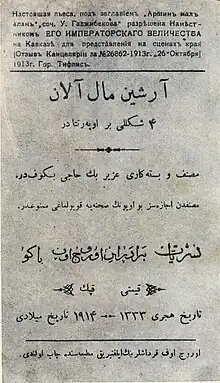 Настоящая пьеса, подъ заглавіемъ „Аршинъ малъ
аланъ“ соч. У. Гаджибекова" разрѣшена Намѣст-
никомъ ЕГО ИМПЕРАТОРСКАГО ВЕЛИЧЕСТВА
на Кавказѣ для представленія на сценахъ края
(Отзывъ Канцеляріи за №26862-1913г. „26“Октября)
1913г. Гор. Тифлисъ.
آرشین مال آلان
۴ شکللی بر اوپه‌رتادر
مصنف و بسته‌کاری عزیر بك حاجی بكوف‌در.
مصنفدن اجازه‌سز بو اوپونك صحنه‌یه قویولماغی ممنوعدر.
نشریات برادران اوروج‌اوف باکو
قیمتی قپك
تاریخ هجری ۱۳۳۳ — ۱۹۱۴ تاریخ میلادی
اوروج اوف قرداشلریك مطبعه‌سنده چاپ اولندی.